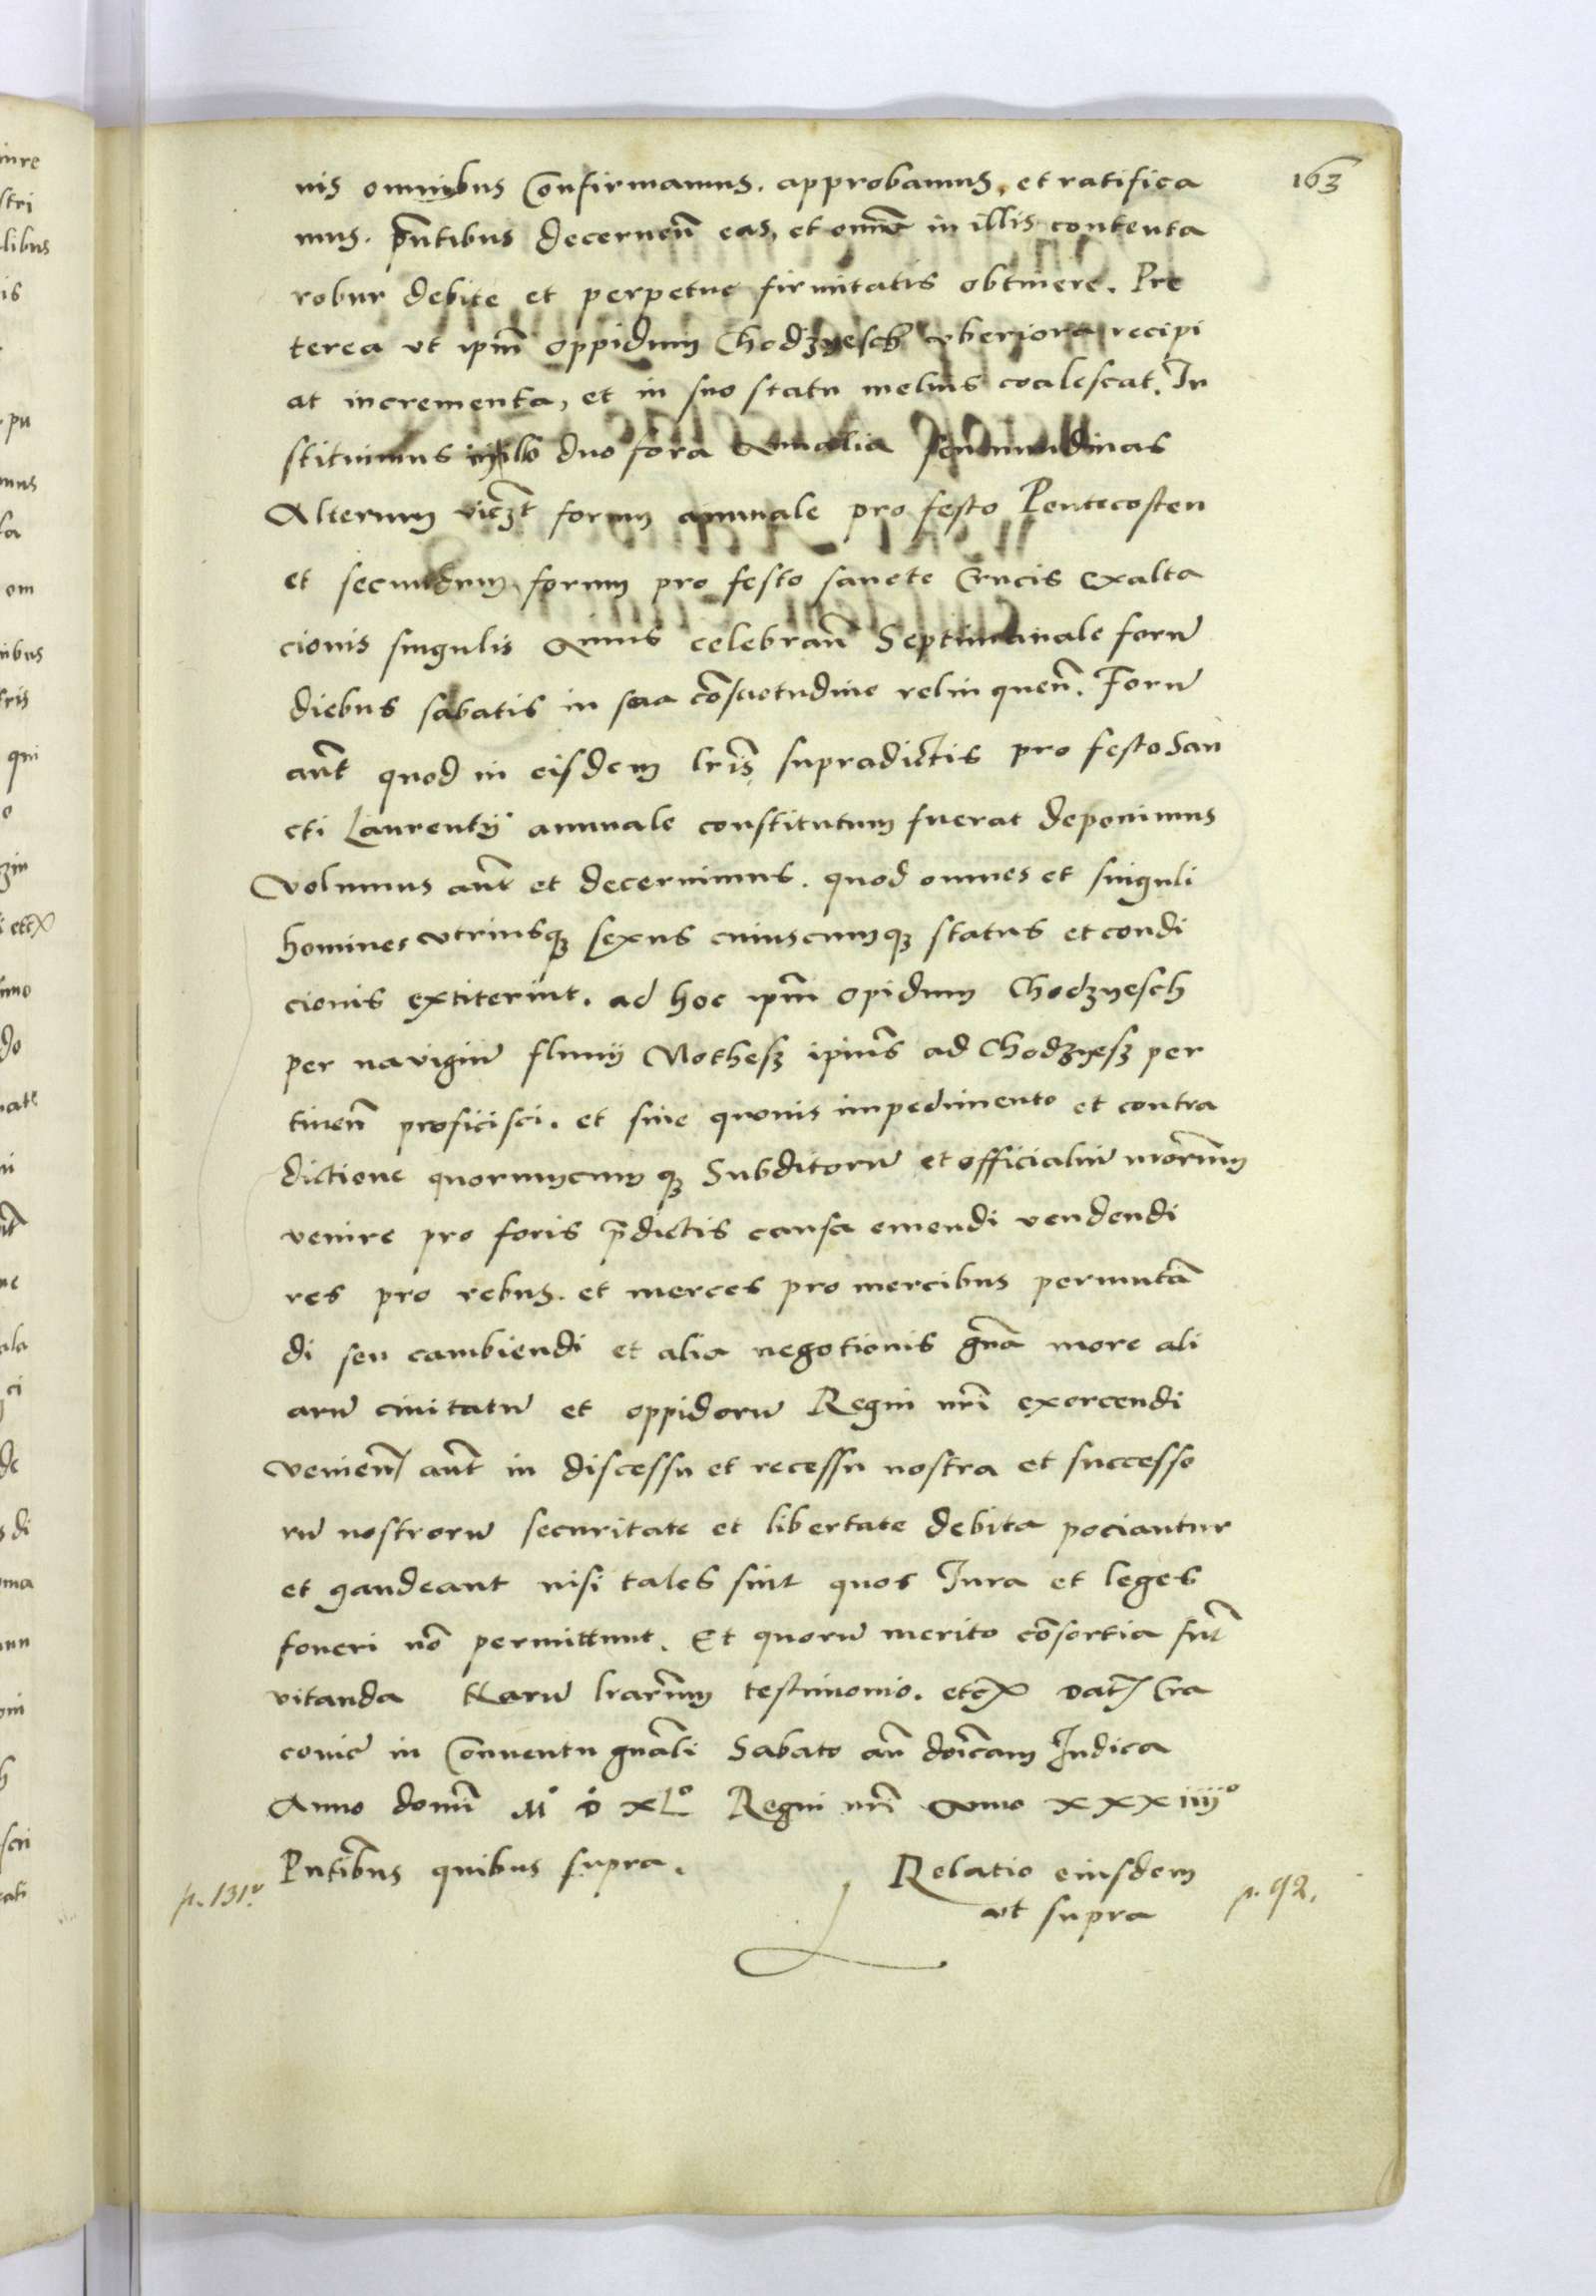 163
nis omnibus Confirmamus. approbamus, et ratifica
mus. pn̄tibus decernen̄ eas, et om̄ia in illis contenta
robur debite et perpetue firmitatis obtinere. Pre
terea vt ip̄m oppidum Chodzyesch vberiora recipi
at incrementa, et in suo statu melius coalescat. In
stituimus in illo duo fora Annalia seu nundinas
Alterum vicz̄t forum annuale pro festo Pentecosten
et secundum forum pro festo sancte Crucis exalta
cionis singulis Annis celebran̄ Septimanale forū
diebus sabatis in sua cōsuetudine relinquen̄. Forū
aūt quod in eisdem lr̄is supradictis pro festo San
cti Laurentÿ annuale constitutum fuerat deponimus
Volumus aūt et decernimus. quod omnes et singuli
homines vtriusqꝫ sexus cuiuscumqꝫ status et condi
cionis extiterint. ad hoc ip̄m opidum Chodzyesch
per navigiū fluuÿ Nothesz ip̄ius ad Chodzyesz per
tinen̄ proficisci. et sine quouis impedimento et contra
dictione quorumcumqꝫ Subditorū et officialiū nr̄orum
venire pro foris p̄dictis causa emendi vendendi
res pro rebus. et merces pro mercibus permutā
di seu cambiendi et alia negotionis gn̄a more ali
arū ciuitatū et oppidorū Regni nr̄i exercendi
Venien̄ aūt in discessu et recessu nostra et successo
rū nostrorū securitate et libertate debita pociantur
et gaudeant nisi tales sint quos Iura et leges
foueri nō permittunt. Et quorū merito cōsortia sūt
vitanda Harū lr̄arum testimonio. etc̄ Dat̄ Cra
couie in Conuentu gn̄ali Sabato an̄ dn̄icam Iudica
Anno domi̅ M° D° XL° Regni nr̄i Anno XXXiiij°
Pn̄tibus quibus supra.
Relatio eiusdem
vt supra
p. 131v.
p. 92.